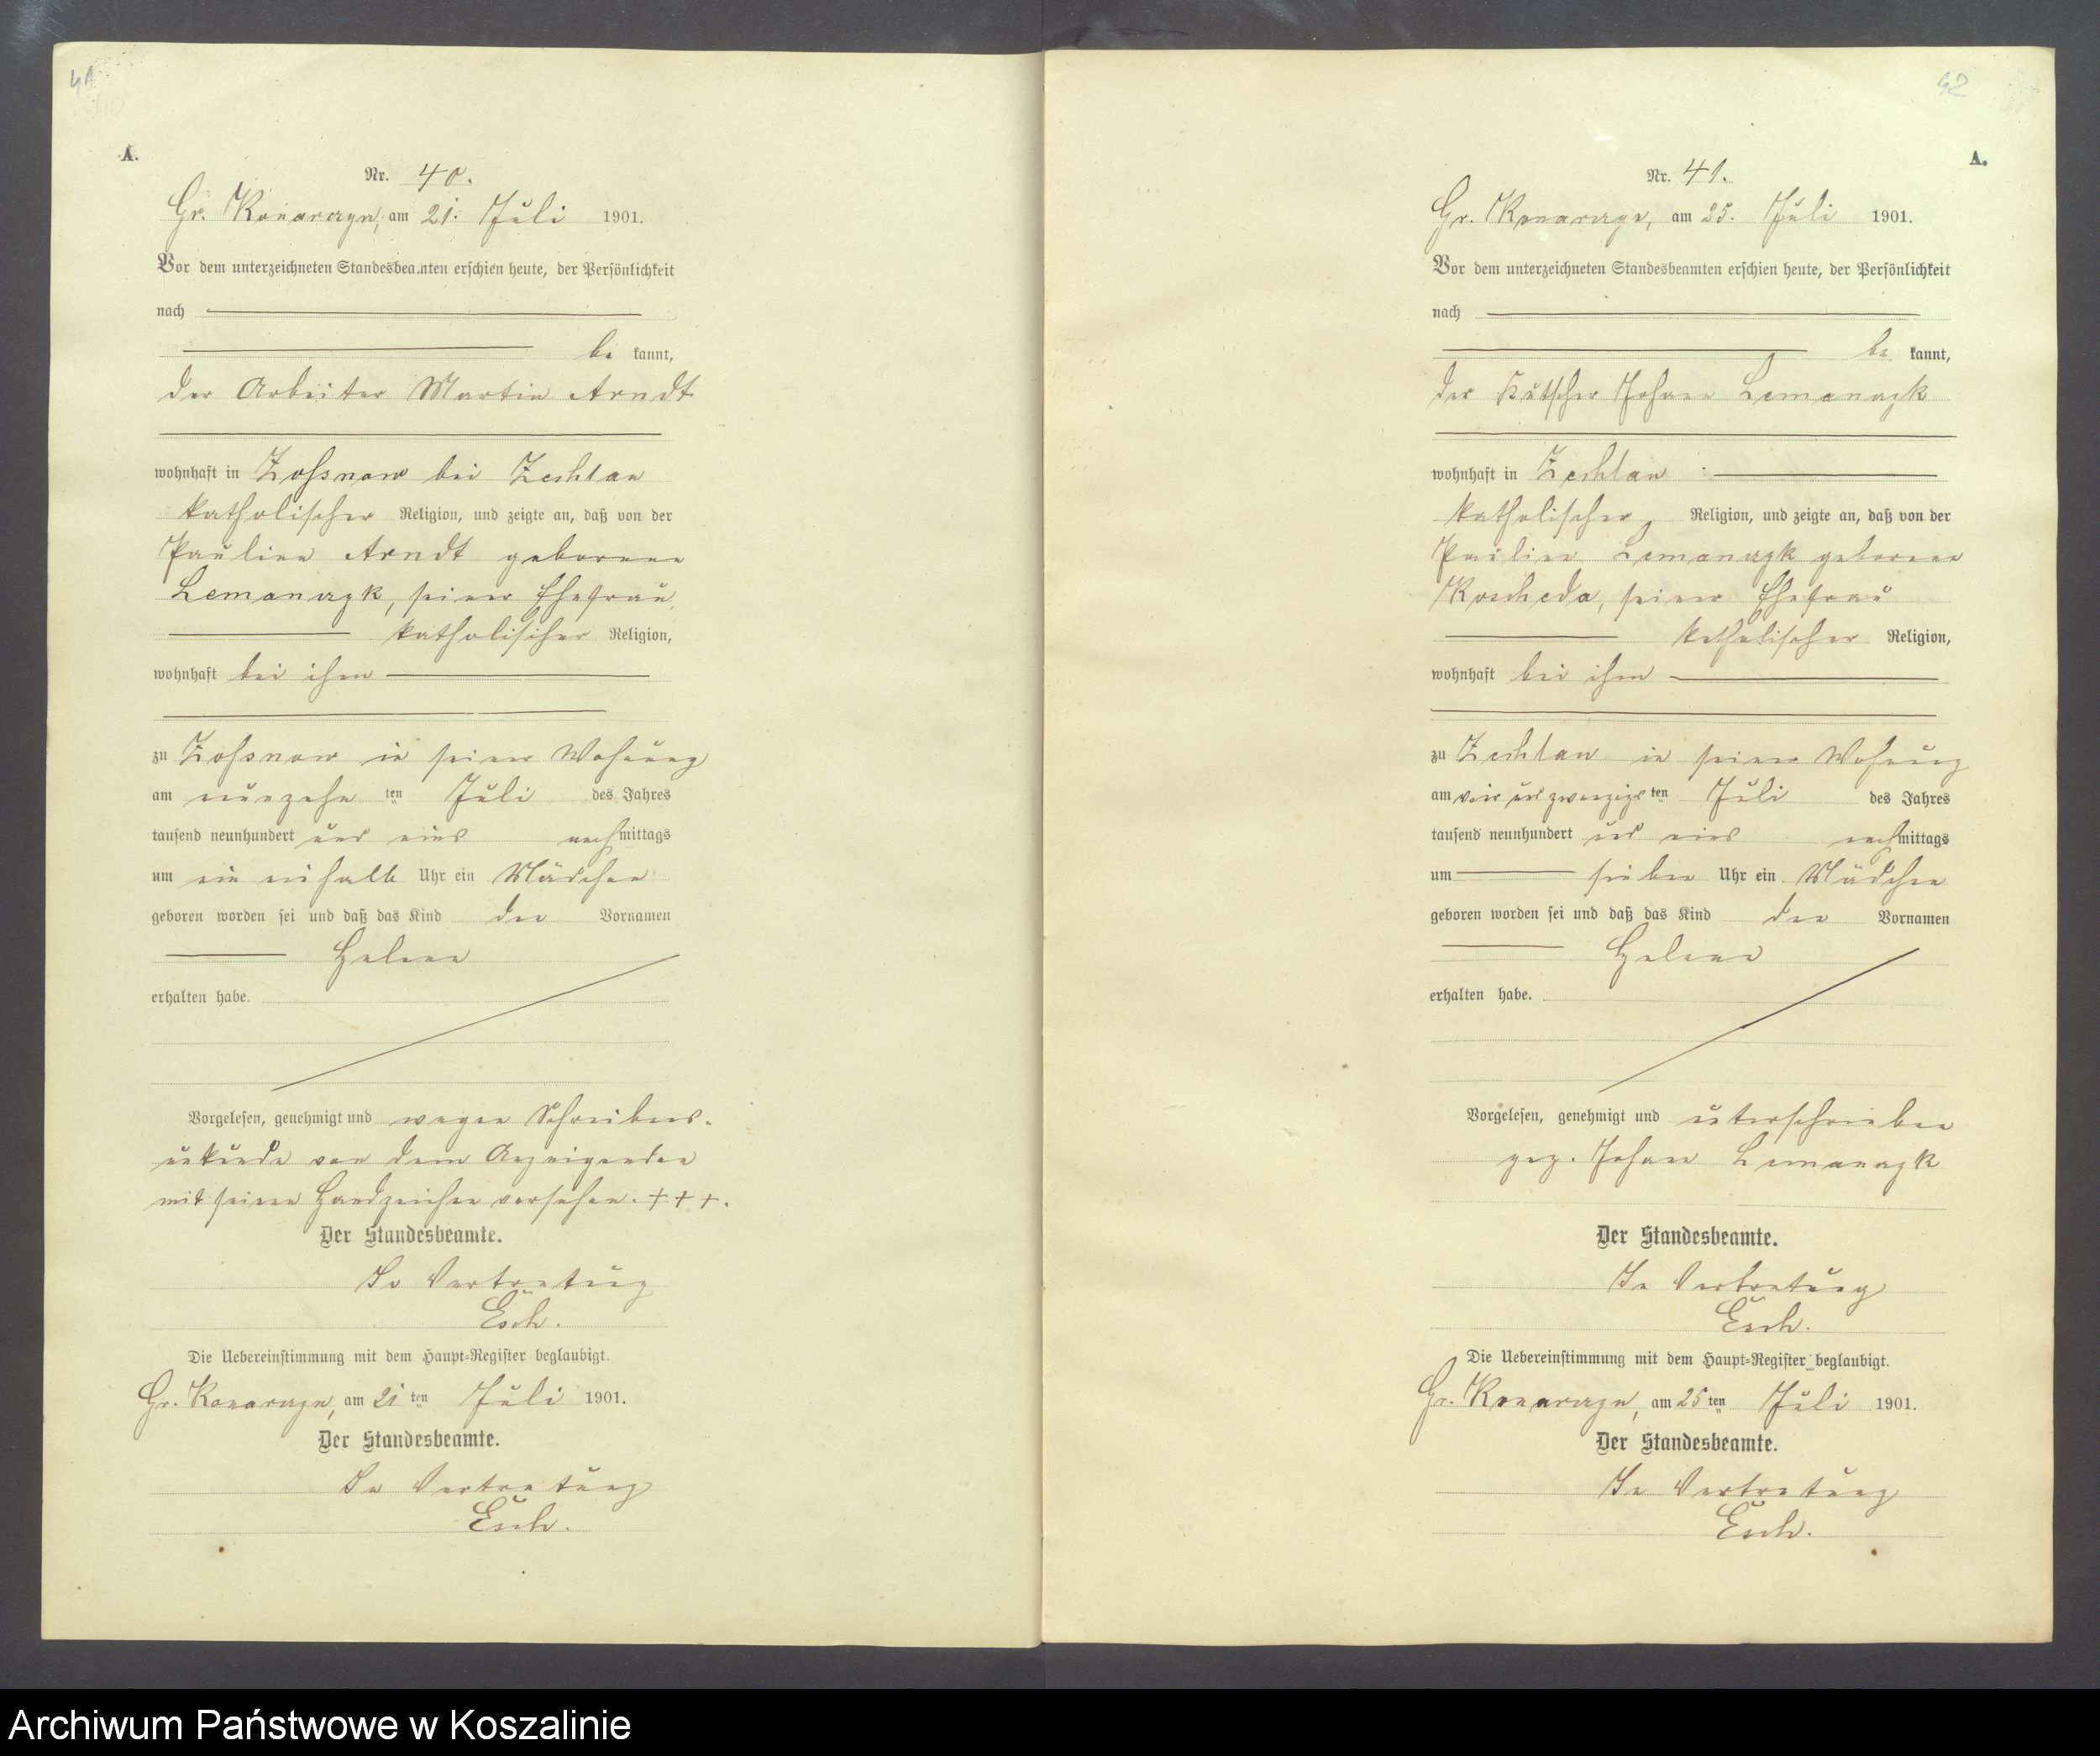 41
A.
Nr. 40.
Gr. Konarczyn, am 21. Juli 1901.
Vor dem unterzeichneten Standesbeamten erschien heute, der Persönlichkeit
nach
be kannt,
der Arbeiter Martin Arndt
wohnhaft in Zossnow bei Zechlau
katholischer Religion, und zeigte an, daß von der
Pauline Arndt geborene
Lemanczyk, seiner Ehefrau,
katholischer Religion,
wohnhaft bei ihm
zu Zossnow in seiner Wohnung
am neunzehn ten Juli des Jahres
tausend neunhundert und eins nachmittags
um ein ein halb Uhr ein Mädchen
geboren worden sei und daß das Kind den Vornamen
Helene
erhalten habe.
Vorgelesen, genehmigt und wegen Schreibens-
unkunde von dem Anzeigenden
mit seinen Handzeichen versehen. +++.
Der Standesbeamte.
In Vertretung
Esch.
Die Uebereinstimmung mit dem Haupt-Register beglaubigt.
Gr. Konarczyn, am 21 ten Juli 1901.
Der Standesbeamte.
In Vertretung
Esch.
42
A.
Nr. 41.
Gr. Konarczyn, am 25. Juli 1901.
Vor dem unterzeichneten Standesbeamten erschien heute, der Persönlichkeit
nach
be kannt,
der Kutscher Johann Lemanczyk
wohnhaft in Zechlau
katholischer Religion, und zeigte an, daß von der
Pauline Lemanczyk geborene
Koscheda, seiner Ehefrau
katholischer Religion,
wohnhaft bei ihm
zu Zechlau in seiner Wohnung
am vier und zwanzigsten Juli des Jahres
tausend neunhundert und eins nachmittags
um sieben Uhr ein Mädchen
geboren worden sei und daß das Kind den Vornamen
Helene
erhalten habe.
Vorgelesen, genehmigt und unterschrieben
gez. Johann Lemanczyk
Der Standesbeamte.
In Vertretung
Esch.
Die Uebereinstimmung mit dem Haupt-Register beglaubigt.
Gr. Konarczyn, am 25 ten Juli 1901.
Der Standesbeamte.
In Vertretung
Esch.
Archiwum Państwowe w Koszalinie